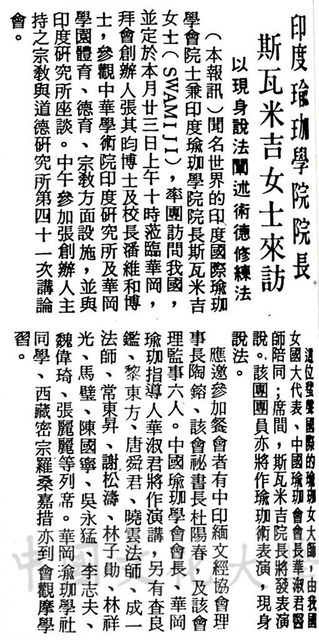 印度瑜珈學院院長
斯瓦米吉女士來訪
以現身說法闡述術德修練法
（本報訊）聞名世界的印度國際瑜珈
學會院士兼印度瑜珈學院院長斯瓦米吉
女士（SWAMIJI），率團訪問我國，
並定於本月廿三日上午十時蒞臨華岡，
拜會創辦人張其昀博士及校長潘維和博
士，參觀中華學術院印度研究所及華岡
學園體育、德育、宗教方面設施，並與
印度研究所座談。中午參加張創辦人主
持之宗教與道德研究所第四十一次講論
會。
這位蜚聲國際的瑜珈女大師，由我國
女國大代表、中國瑜珈會會長華淑君醫
師陪同；席間，斯瓦米吉院長將發表演
說。該團團員亦將作瑜珈術表演，現身
說法。
應邀參加餐會者有中印緬文經協會理
事長陶鎔、該會祕書長杜陽春，及該會
理監事六人。中國瑜珈學會會長、華岡
瑜珈指導人華淑君將作演講，另有查良
鑑、黎東方、唐舜君、曉雲法師、成一
法師、常東昇、謝松濤、林子勛、林祥
光、馬璧、陳國寧、吳永猛、李志夫、
魏偉琦、張麗麗等列席。華岡瑜珈學社
同學、西藏密宗羅桑嘉措亦到會觀摩學
習。